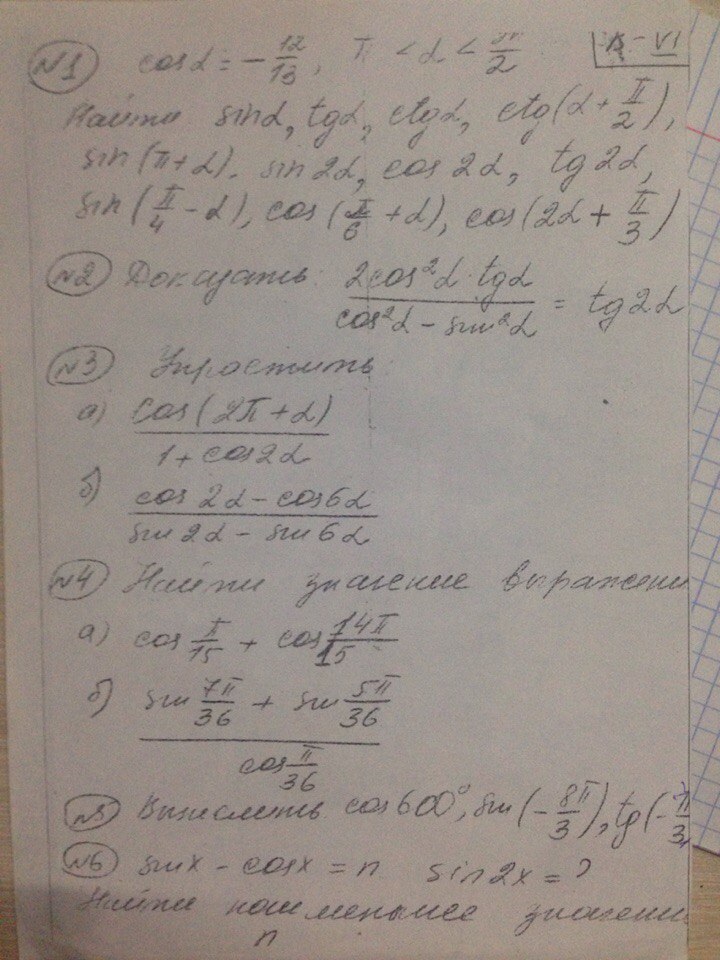 №1 cos α = -12/13, π < α < 3π/2
Найти sin α, tg α, ctg α, ctg(α + π/2),
sin(π+α), sin 2α, cos 2α, tg 2α,
sin(π/4 - α), cos(π/6 + α), cos(2α + π/3)
№2 Доказать: 2cos²α · tg α / cos²α - sin²α = tg 2α
№3 Упростить:
а) cos(2π+α) / 1 + cos 2α
б) cos 2α - cos 6α / sin 2α - sin 6α
№4 Найти значение выражени
а) cos π/15 + cos 14π/15
б) sin 7π/36 + sin 5π/36 / cos π/36
№5 Вычислить cos 600°, sin(-8π/3), tg(-
№6 sin x - cos x = n sin 2x = ?
Найти наименьшее значени
n